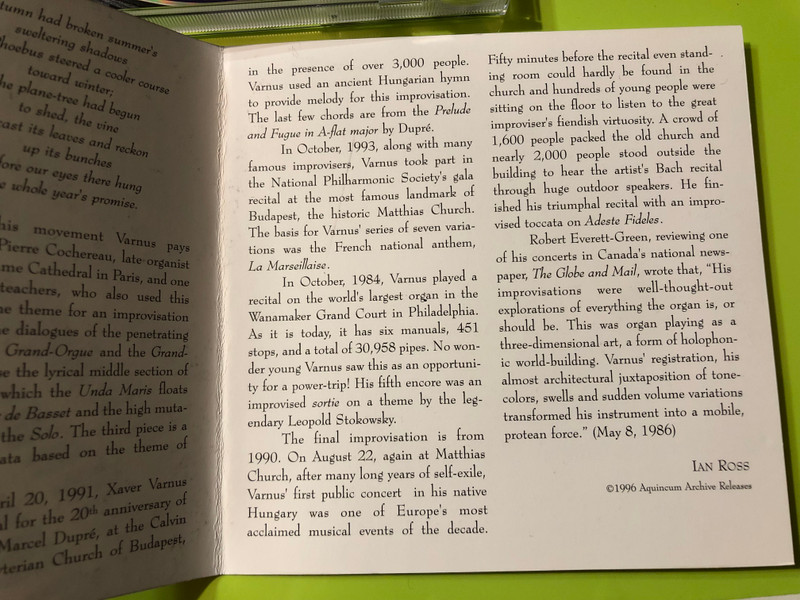 tumn had broken summer's
sweltering shadows
hoebus steered a cooler course
toward winter;
he plane-tree had begun
to shed, the vine
cast its leaves and reckon
up its bunches
fore our eyes there hung
e whole year's promise.
his movement Varnus pays
Pierre Cochereau, late organist
me Cathedral in Paris, and one
teachers, who also used this
ne theme for an improvisation
e dialogues of the penetrating
Grand-Orgue and the Grand-
se the lyrical middle section of
which the Unda Maris floats
de Basset and the high muta-
the Solo. The third piece is a
ata based on the theme of
ril 20, 1991, Xaver Varnus
al for the 20th anniversary of
Marcel Dupré, at the Calvin
terian Church of Budapest,
in the presence of over 3,000 people.
Varnus used an ancient Hungarian hymn
to provide melody for this improvisation.
The last few chords are from the Prelude
and Fugue in A-flat major by Dupré.
In October, 1993, along with many
famous improvisers, Varnus took part in
the National Philharmonic Society's gala
recital at the most famous landmark of
Budapest, the historic Matthias Church.
The basis for Varnus' series of seven varia-
tions was the French national anthem,
La Marseillaise.
In October, 1984, Varnus played a
recital on the world's largest organ in the
Wanamaker Grand Court in Philadelphia.
As it is today, it has six manuals, 451
stops, and a total of 30,958 pipes. No won-
der young Varnus saw this as an opportuni-
ty for a power-trip! His fifth encore was an
improvised sortie on a theme by the leg-
endary Leopold Stokowsky.
The final improvisation is from
1990. On August 22, again at Matthias
Church, after many long years of self-exile,
Varnus' first public concert in his native
Hungary was one of Europe's most
acclaimed musical events of the decade.
Fifty minutes before the recital even stand-
ing room could hardly be found in the
church and hundreds of young people were
sitting on the floor to listen to the great
improviser's fiendish virtuosity. A crowd of
1,600 people packed the old church and
nearly 2,000 people stood outside the
building to hear the artist's Bach recital
through huge outdoor speakers. He fin-
ished his triumphal recital with an impro-
vised toccata on Adeste Fideles.
Robert Everett-Green, reviewing one
of his concerts in Canada's national news-
paper, The Globe and Mail, wrote that, "His
improvisations were well-thought-out
explorations of everything the organ is, or
should be. This was organ playing as a
three-dimensional art, a form of holophon-
ic world-building. Varnus' registration, his
almost architectural juxtaposition of tone-
colors, swells and sudden volume variations
transformed his instrument into a mobile,
protean force." (May 8, 1986)
IAN ROSS
©1996 Aquincum Archive Releases